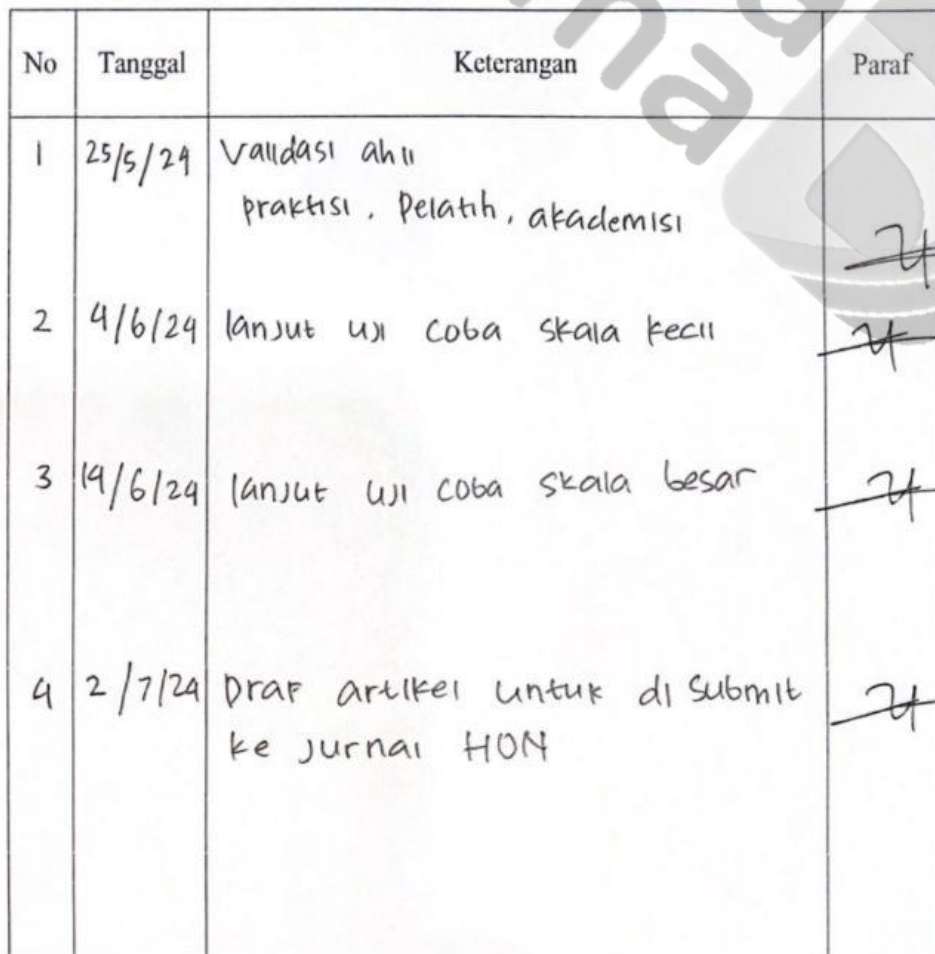 No Tanggal Keterangan Paraf
1 25/5/24 Validasi ahli
praktisi, Pelatih, akademisi
2 4/6/24 lanjut uji coba skala kecil
3 19/6/24 lanjut uji coba skala besar
4 2/7/24 Draf artikel untuk di submit
ke jurnal HON